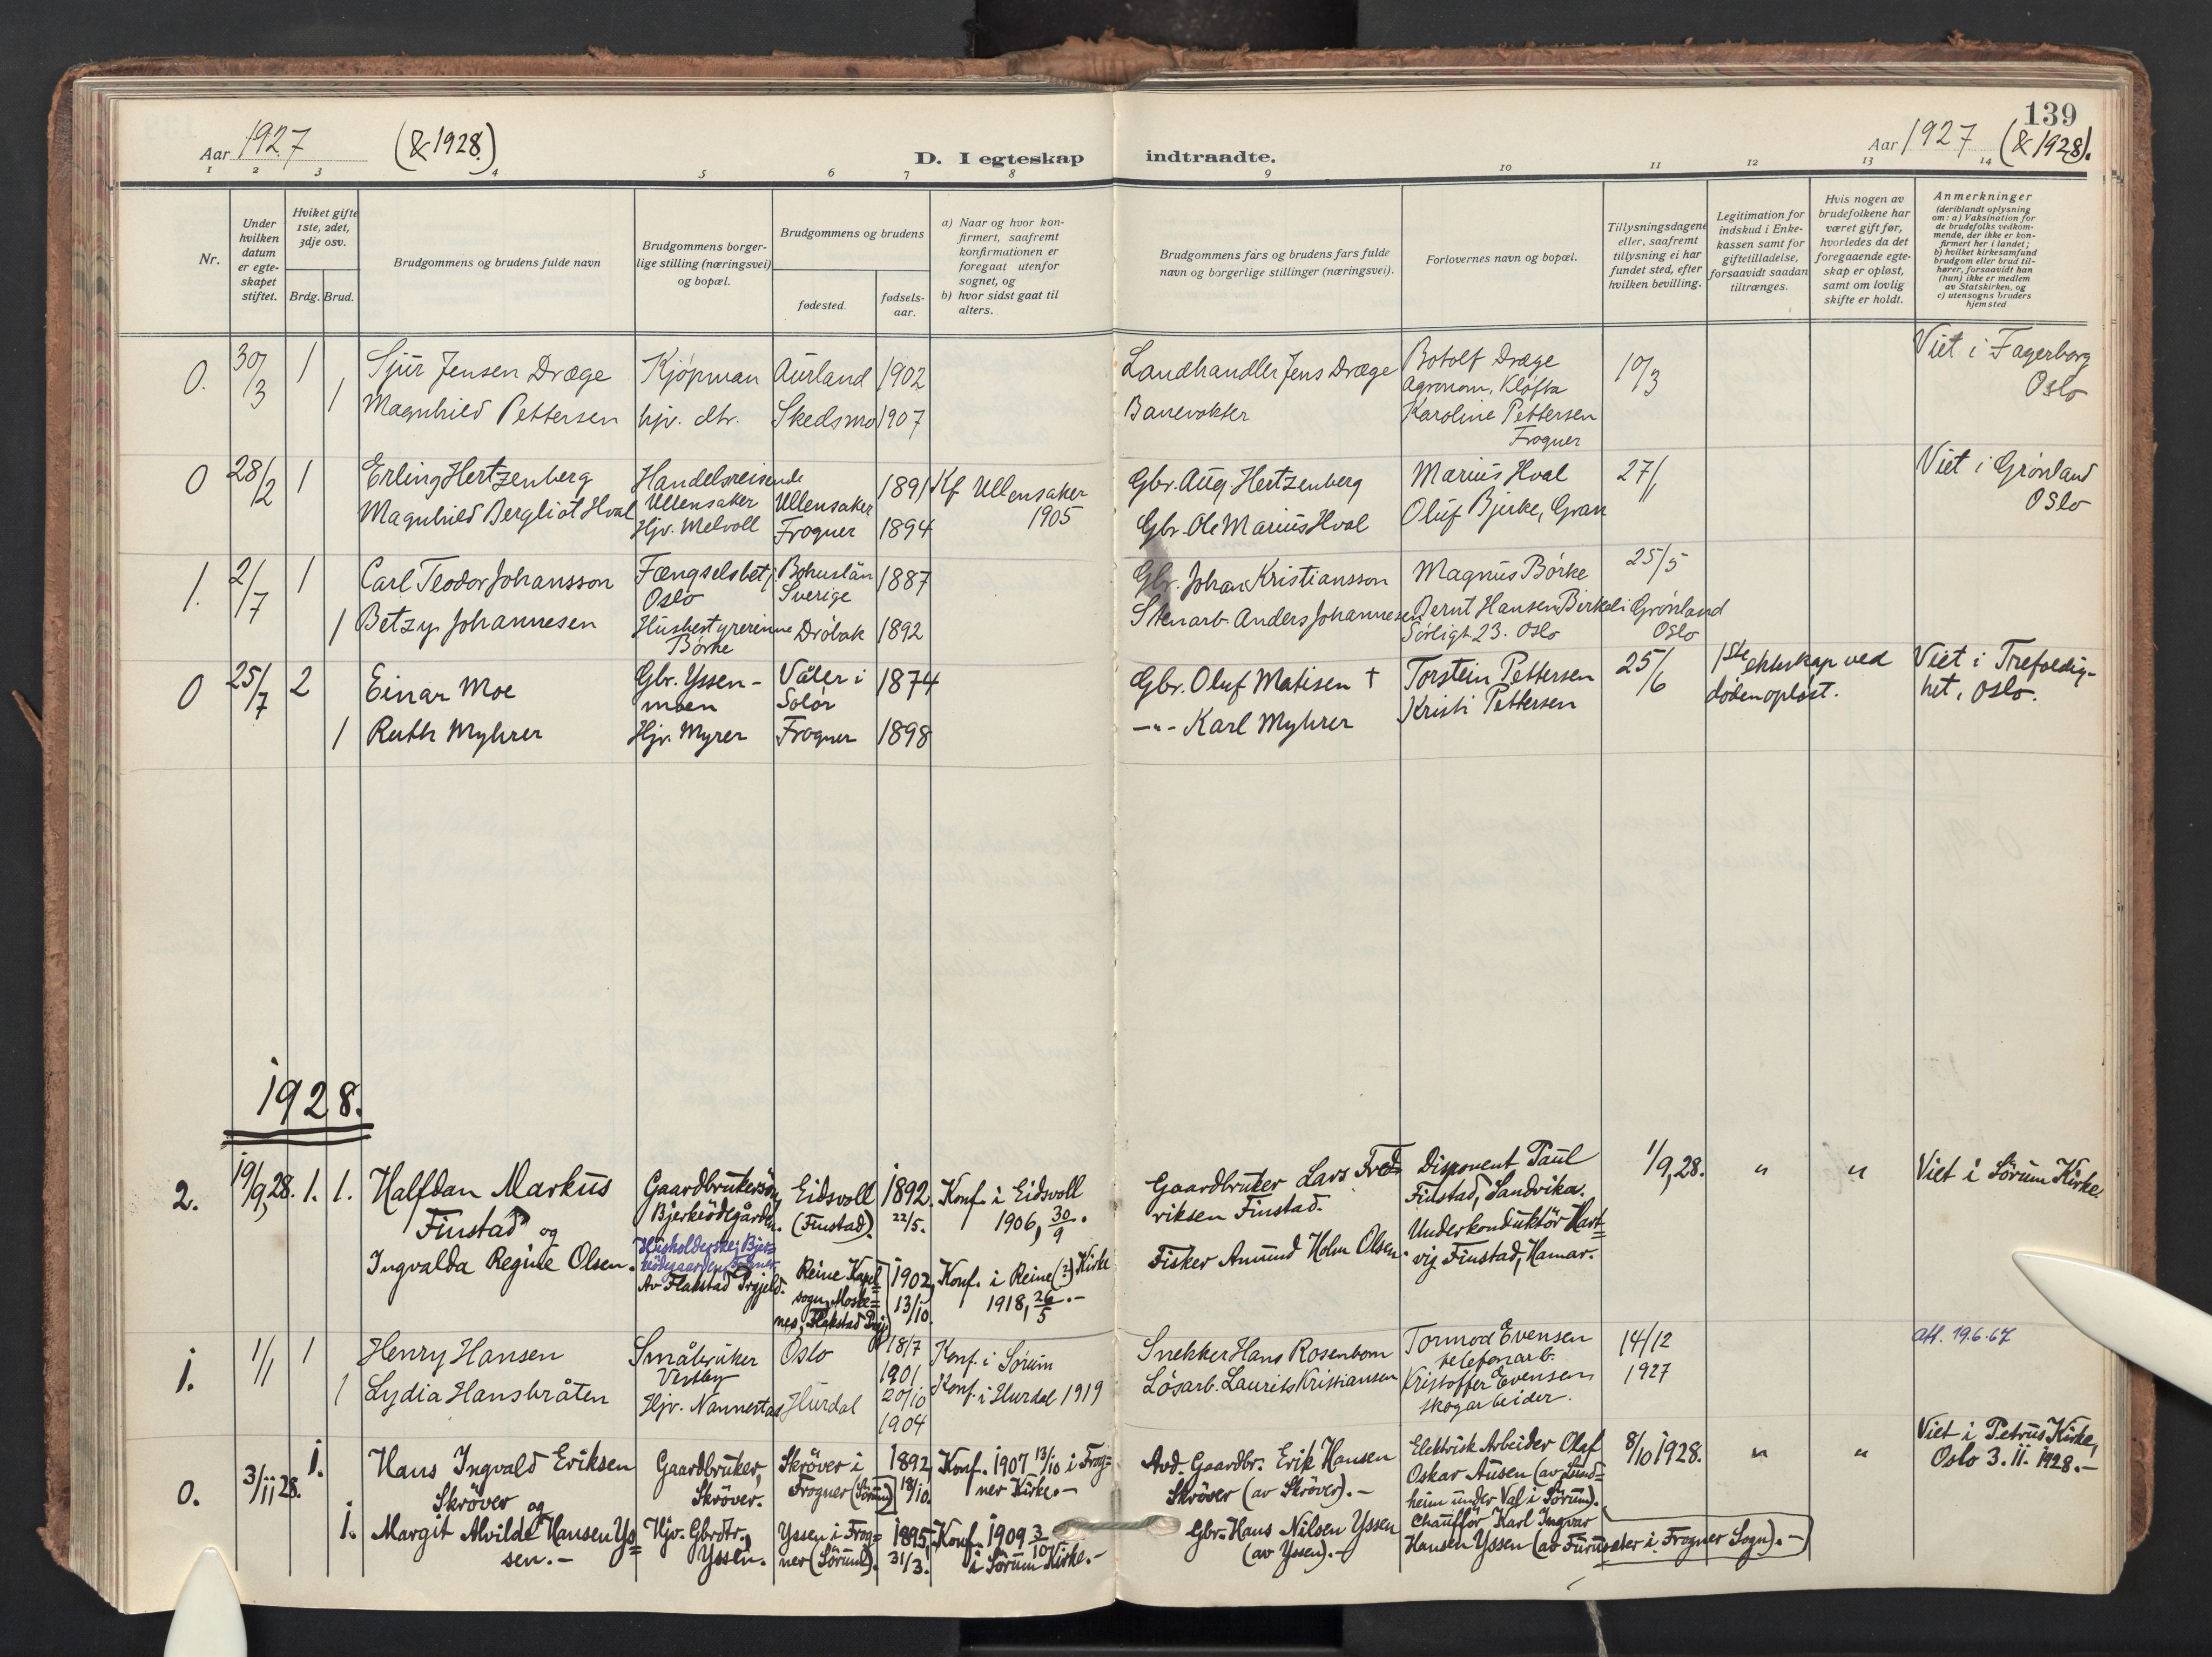 139
Aar 1927 (& 1928.)
D. I egteskap indtraadte.
Aar 1927 (& 1928).
1 2 3 4 5 6 7 8 9 10 11 12 13 14
Nr.
Under hvilken datum er egte-skapet stiftet.
Hviket gifte 1ste, 2det, 3dje osv.
Brdg. Brud.
Brudgommens og brudens fulde navn
Brudgommens borger-lige stilling (næringsvei) og bopæl.
Brudgommens og brudens
fødested.
fødsels-aar.
a) Naar og hvor kon-firmert, saafremt konfirmationen er foregaat utenfor sognet, og
b) hvor sidst gaat til alters.
Brudgommens fars og brudens fars fulde navn og borgerlige stillinger (næringsvei).
Forlovernes navn og bopæl.
Tillysningsdagene eller, saafremt tillysning ei har fundet sted, efter hvilken bevilling.
Legitimation for indskud i Enke-kassen samt for giftetilladelse, forsaavidt saadan tiltrænges.
Hvis nogen av brudefolkene har været gift før, hvorledes da det foregaaende egte-skap er opløst, samt om lovlig skifte er holdt.
Anmerkninger
(deriblandt oplysning om: a) Vaksination for de brudefolks vedkom-mende, der ikke er kon-firmert her i landet;
b) hvilket kirkesamfund brudgom eller brud til-hører, forsaavidt han (hun) ikke er medlem av Statskirken, og
c) utensogns bruders hjemsted
0. 30/3 1 Sjur Jensen Dræge Kjøpman Aurland 1902 Landhandler Jens Dræge Botolf Dræge Agronom, Kløfta 10/3 Viet i Fagerborg Oslo
1 Magnhild Pettersen hjv. dtr. Skedsmo 1907 Banevokter Karoline Pettersen Frogner
0 28/2 1 Erling Hertzenberg Handelsreisende Ullensaker Ullensaker 1891 Kf Ullensaker 1905 Gbr. Aug. Hertzenberg Marius Hval 27/1 Viet i Grønland Oslo
Magnhild Bergliot Hval Hjv. Melvoll Frogner 1894 Gbr. Ole Marius Hval Oluf Bjerke, Gran
1. 2/7 1 Carl Teodor Johansson Fængselsbetj. Oslo Bohuslän Sverige 1887 Gbr. Johan Kristiansson Magnus Børke 25/5
1 Betzy Johannesen Husbestyrerinne Børke Drøbak 1892 Stenarb. Anders Johannesen Bernt Hansen Birkeli Grønland Oslo
Sørligt. 23. Oslo
0 25/7 2 Einar Moe Gbr. Yssen-moen Våler i Solør 1874 Gbr. Oluf Matisen † Torstein Pettersen 25/6 1ste ekteskap ved døden opløst. Viet i Trefoldig-het, Oslo.
1 Ruth Myhrer Hjv. Myrer Frogner 1898 —"— Karl Myhrer Kristi Pettersen
1928.
2. 19/9,28. 1. 1. Halfdan Markus Finstad og Gaardbrukersøn, Bjerkeödegården. Eidsvoll (Finstad). 1892. 22/5. Konf. i Eidsvoll 1906, 30/9. Gaardbruker Lars Fred-riksen Finstad. Disponent Paul Finstad, Sandvika. 1/9,28. " " Viet i Sörum Kirke.
Ingvalda Regine Olsen. Av Flakstad Prgjeld. Reine Kapel=sogn, Moske=nes, Flakstad Prgj. 1902, 13/10. Konf. i Reine (?) Kirke 1918, 26/5.- Fisker Amund Holm Olsen. Underkonduktör Hart=vig Finstad, Hamar.
1. 1/1 1 Henry Hansen Småbruker Vestby Oslo 18/7 1901 Konf. i Sørum Snekker Hans Rosenbom Tormod Evensen telefonarb. 14/12 1927 att. 19.6.67
1 Lydia Hansbråten Hjv. Nannestad Hurdal 20/10 1904 Konf. i Hurdal 1919 Løsarb. Laurits Kristiansen Kristoffer Evensen skogarbeider.
0. 3/11 28. 1. Hans Ingvald Eriksen Skröver og Gaardbruker, Skröver. Skröver i Frogner (Sörum) 1892, 18/10. Konf. 1907 13/10 i Frog=ner Kirke.- Avd. Gaardbr. Erik Hansen Skröver (av Skröver).- Elektrisk Arbeider Olaf Oskar Ausen (av Lund=heim under Val i Sörum). 8/10 1928. " " Viet i Petrus Kirke, Oslo 3. 11. 1928.-
1. Margit Alvilde Hansen Ys=sen.- Hjv. Gbrdtr. Yssen. Yssen i Frog=ner (Sörum). 1895, 31/3. Konf. 1909 3/10 i Sörum Kirke.- Gbr. Hans Nilsen Yssen (av Yssen).- Chaufför Karl Ingvar Hansen Yssen (av Furuseter i Frogner Sogn).-